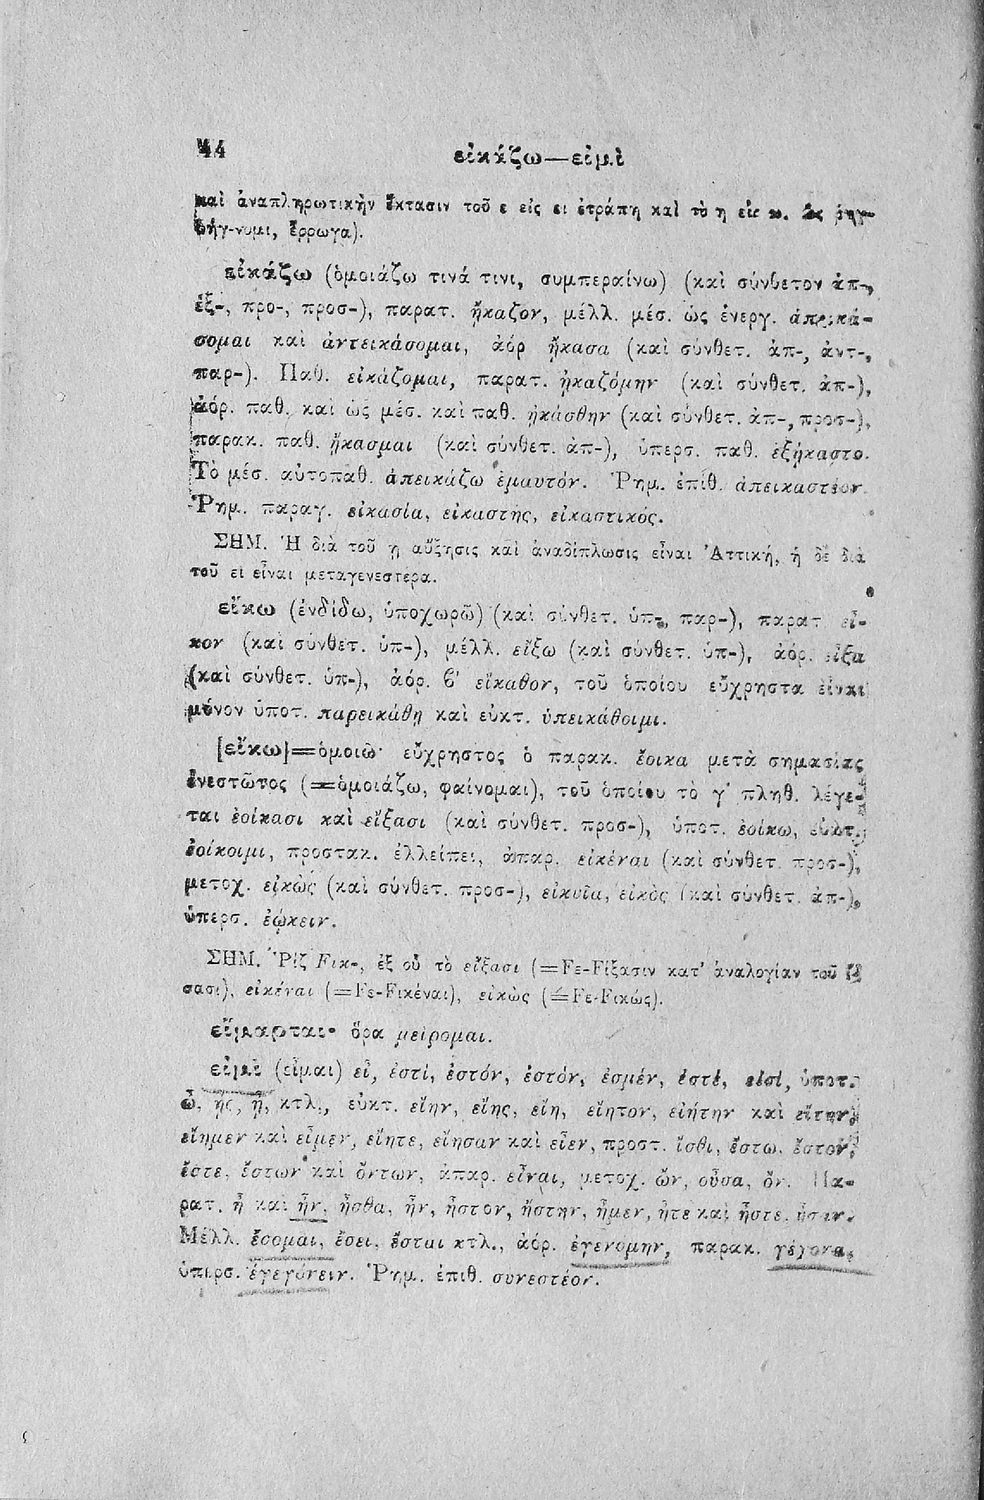 44
εἰκάζω—εἰμὶ
καὶ ἀναπληρωτικὴν ἔκτασιν τοῦ ε εἰς ει ἐτράπη καὶ τὸ η εἰς ω.
ῥήγ-νυμι, ἔρρωγα).
εἰκάζω (ὁμοιάζω τινά τινι, συμπεραίνω) (καὶ σύνθετον ἀπ-,
ἐξ-, προ-, προσ-), παρατ. ᾔκαζον, μέλλ. μέσ. ὡς ἐνεργ. ἀπεικά-
σομαι καὶ ἀντεικάσομαι, ἀόρ ᾔκασα (καὶ σύνθετ. ἀπ-, ἀντ-,
παρ-). Παθ. εἰκάζομαι, παρατ. ᾐκαζόμην (καὶ σύνθετ. ἀπ-),
ἀόρ. παθ. καὶ ὡς μέσ. καὶ παθ. ᾐκάσθην (καὶ σύνθετ. ἀπ-, προσ-),
παρακ. παθ. ᾔκασμαι (καὶ σύνθετ. ἀπ-), ὑπερσ. παθ. ἐξῄκαστο.
Τὸ μέσ. αὐτοπαθ. ἀπεικάζω ἐμαυτόν. Ῥημ. ἐπίθ. ἀπεικαστέον
Ῥημ. παραγ. εἰκασία, εἰκαστής, εἰκαστικός.
ΣΗΜ. Ἡ διὰ τοῦ ῃ αὔξησις καὶ ἀναδίπλωσις εἶναι Ἀττική, ἡ δὲ διὰ
τοῦ ει εἶναι μεταγενεστέρα.
εἴκω (ἐνδίδω, ὑποχωρῶ) (καὶ σύνθετ. ὑπ-, παρ-), παρατ εἶ-
κον (καὶ σύνθετ. ὑπ-), μέλλ. εἴξω (καὶ σύνθετ. ὑπ-), ἀόρ. εἶξα
(καὶ σύνθετ. ὑπ-), ἀόρ. β' εἴκαθον, τοῦ ὁποίου εὔχρηστα εἶναι
μόνον ὑποτ. παρεικάθῃ καὶ εὐκτ. ὑπεικάθοιμι.
[εἴκω]=ὁμοιῶ· εὔχρηστος ὁ παρακ. ἔοικα μετὰ σημασίας
ἐνεστῶτος (=ὁμοιάζω, φαίνομαι), τοῦ ὁποίου τὸ γ' πληθ. λέγε-
ται ἐοίκασι καὶ εἴξασι (καὶ σύνθετ. προσ-), ὑποτ. ἐοίκω, εὐκτ.
ἐοίκοιμι, προστακ. ἐλλείπει, ἀπαρ. εἰκέναι (καὶ σύνθετ. προσ-),
μετοχ. εἰκὼς (καὶ σύνθετ. προσ-), εἰκυῖα, εἰκὸς (καὶ σύνθετ. ἀπ-),
ὑπερσ. ἐῴκειν.
ΣΗΜ. Ῥίζ Fικ-, ἐξ οὗ τὸ εἴξασι (=Fε-Fίξασιν κατ' ἀναλογίαν τοῦ ἴ-
σασι), εἰκέναι (=Fε-Fικέναι), εἰκὼς (=Fε-Fικώς).
εἵμαρται· ὅρα μείρομαι.
εἰμὶ (εἶμαι) εἶ, ἐστί, ἐστόν, ἐστόν, ἐσμέν, ἐστέ, εἰσί, ὑποτ.
ὦ, ᾖς, ᾖ, κτλ., εὐκτ. εἴην, εἴης, εἴη, εἴητον, εἰήτην καὶ εἴτην,
εἴημεν καὶ εἶμεν, εἴητε, εἴησαν καὶ εἶεν, προστ. ἴσθι, ἔστω. ἔστον,
ἔστε, ἔστων καὶ ὄντων, ἀπαρ. εἶναι, μετοχ. ὤν, οὖσα, ὄν. Πα-
ρατ. ἦ καὶ ἦν, ἦσθα, ἦν, ἦστον, ἤστην, ἦμεν, ἦτε καὶ ἦστε, ἦσαν.
Μέλλ. ἔσομαι, ἔσει, ἔσται κτλ., ἀόρ. ἐγενόμην, παρακ. γέγονα,
ὑπερσ. ἐγεγόνειν. Ῥημ. ἐπιθ. συνεστέον.